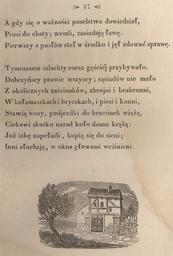 37
A gdy się o ważności poselstwa dowiedział,
Prosi do chaty; weszli, zasiadają ławę.
Pierwszy z posłów stał w środku i jął zdawać sprawę.
Tymczasem szlachty coraz gęściéj przybywało.
Dobrzyńscy prawie wszyscy; sąsiadów nie mało
Z okolicznych zaścianków, zbrojni i bezbronni,
W kałamaszkach i bryczkach, i piesi i konni.
Stawią wozy, podjezdki do brzezinek wiążą,
Ciekawi skutku narad koło domu krążą:
Już izbę napełnili, kupią się do sieni;
Inni słuchają, w okna głowami wcieśnieni.